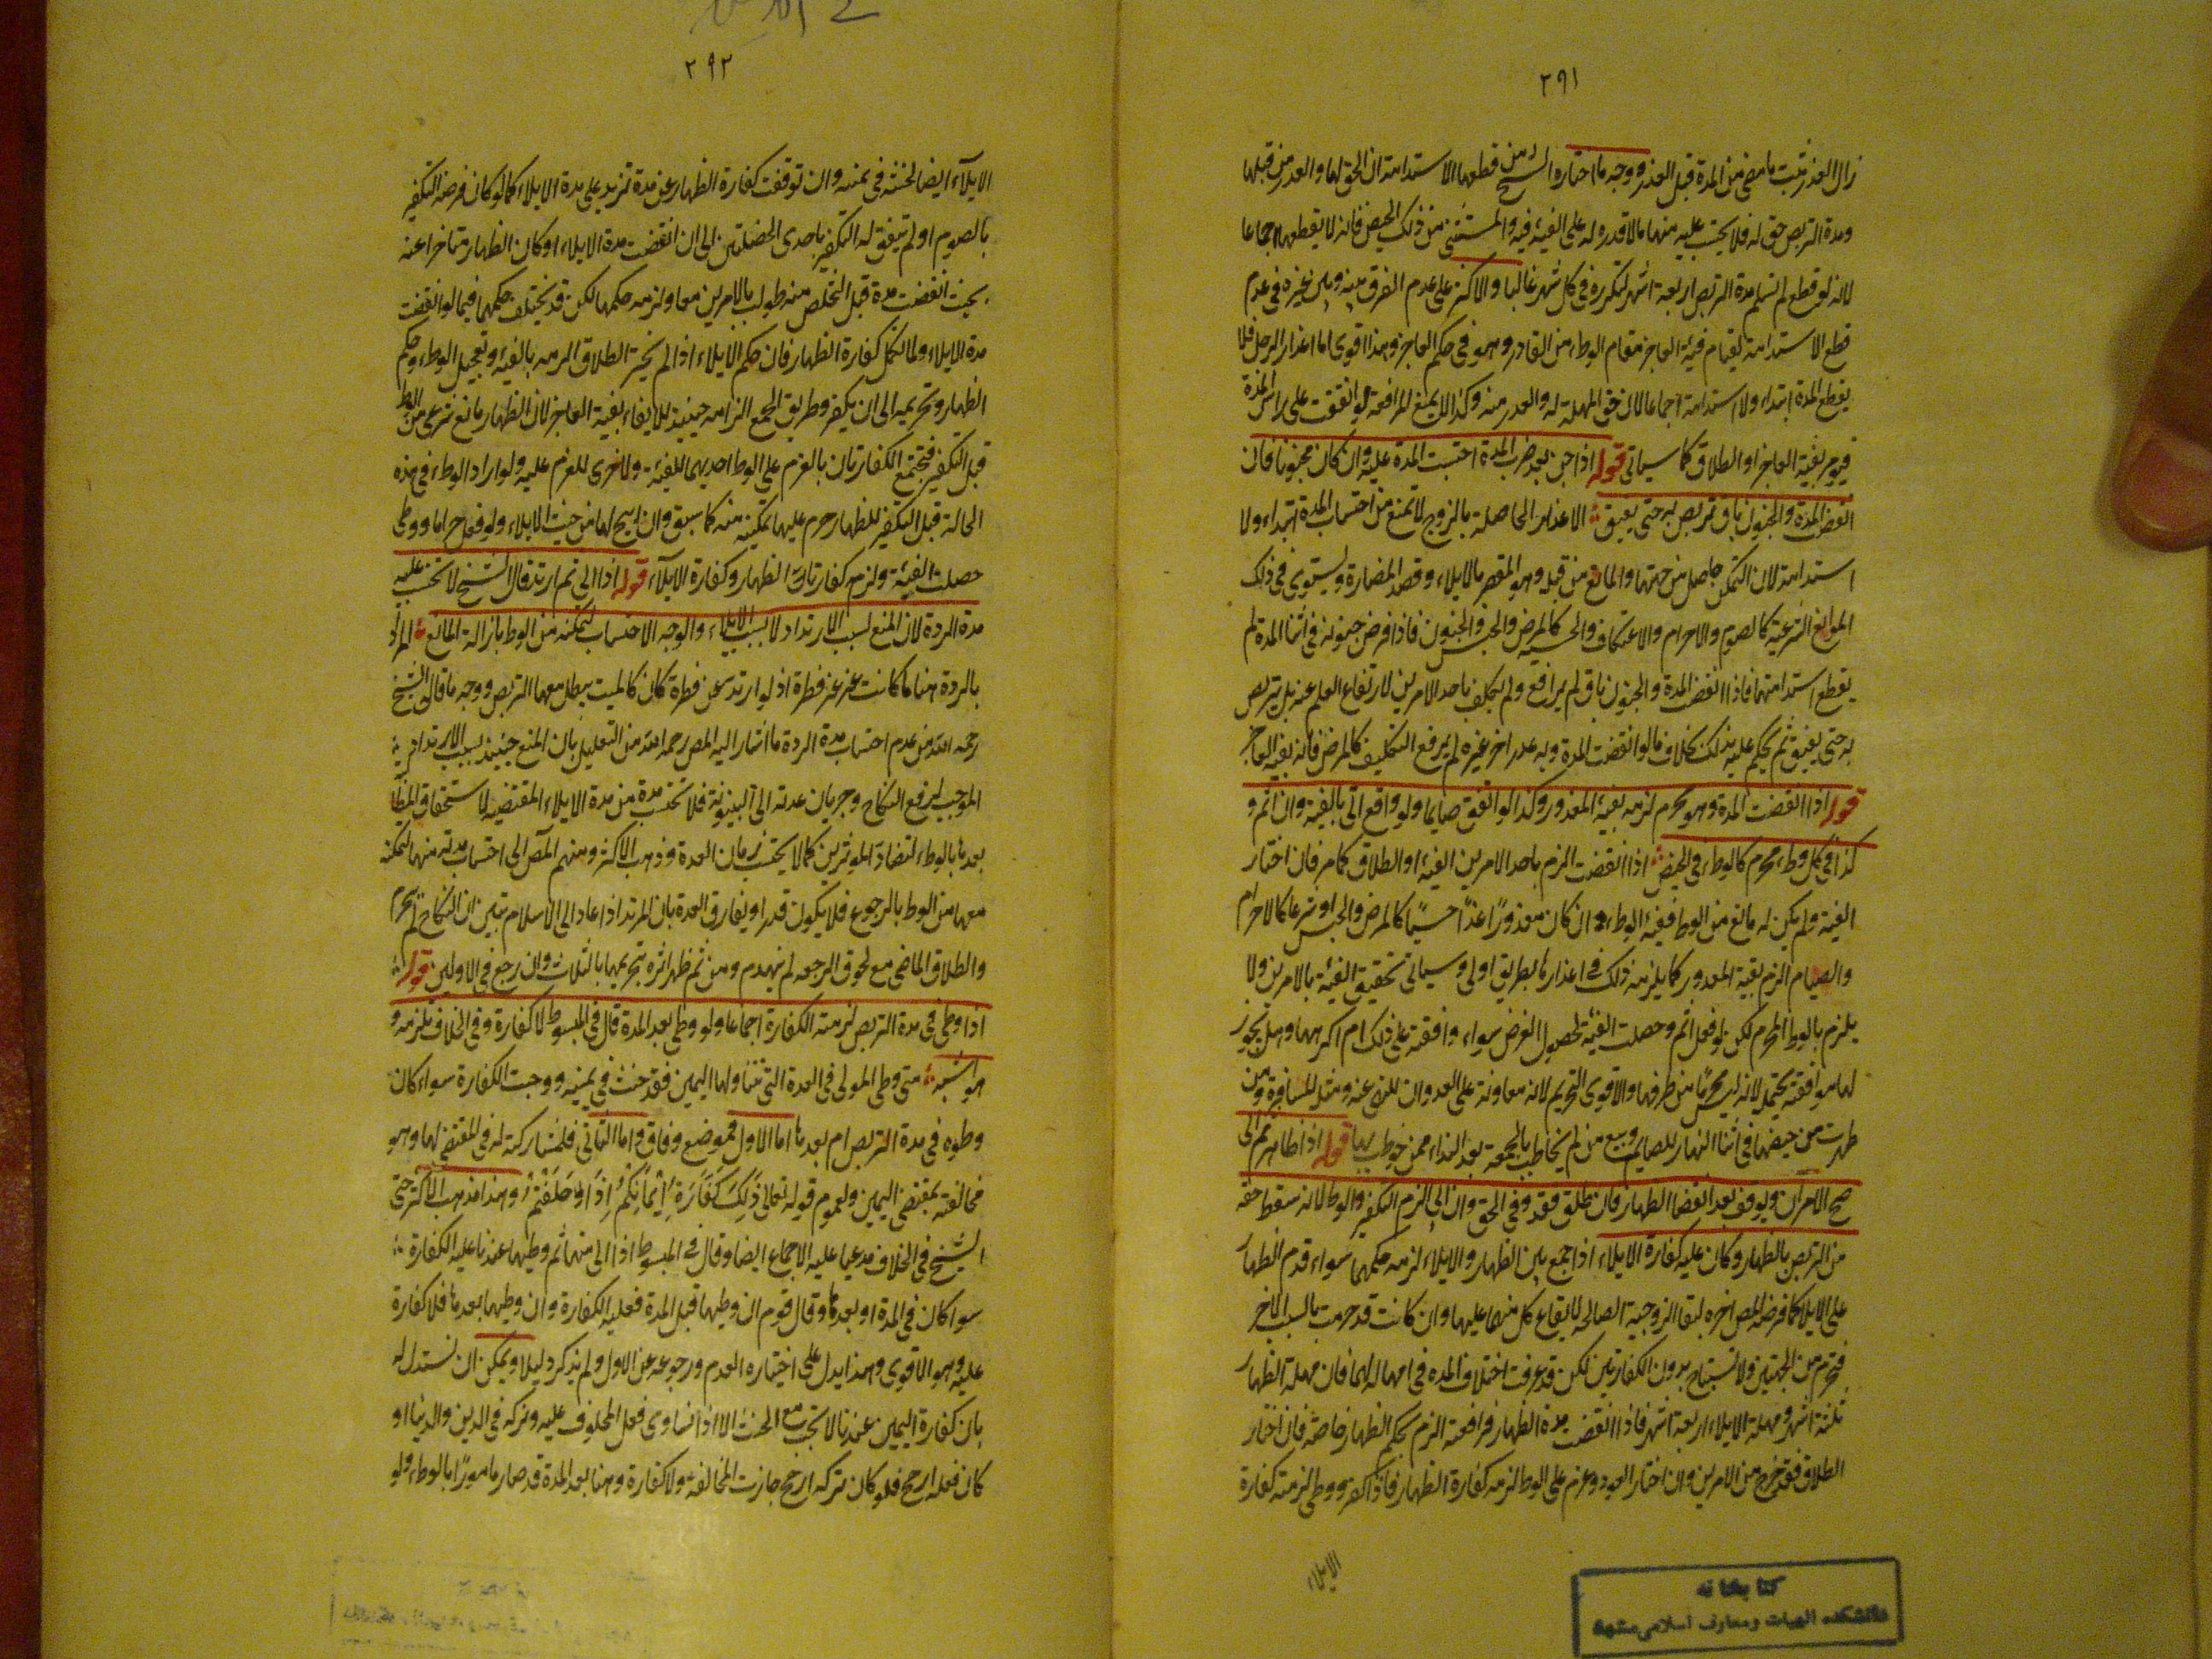 ٢٩١
زال العذر ثبت ما مضى من المدة قبل العذر ووجه ما اختاره الشيخ من قطعها الاستدامة ان الحق لها والعذر من قبلها
ومدة التربص حق له فلا يحتسب عليه منها ما لا قدرة له على الفيئة فيه والمستثنى من ذلك الحيض فانه لا يقطعها اجماعا
لانه لو قطع لم تسلم مدة التربص اربعة اشهر لتكرره في كل شهر غالبا والاكثر على عدم الفرق بينه وبين غيره في عدم
قطع الاستدامة لقيام فيئة العاجز مقام الوطء من القادر وهو في حكم العاجز وهذا اقوى اما اعذار الرجل فلا
يقطع المدة ابتداء ولا استدامة اجماعا لان حق المهلة له والعذر منه وكذا لا يمنع المرافعة لو اتفقت على راس المدة
فيؤمر بفيئة العاجز او الطلاق كما سياتى قوله اذا جن بعد ضرب المدة احتسبت المدة عليه وان كان مجنونا فان
انقضت المدة والجنون باق تربص به حتى يفيق الاعذار الحاصلة بالزوج لا تمنع من احتساب المدة ابتداء ولا
استدامة لان التمكن حاصل من جهتها والمانع من قبله وهو المقصر بالايلاء وقصد المضارة ويستوى في ذلك
الموانع الشرعية كالصوم والاحرام والاعتكاف والحسية كالمرض والحبس والجنون فاذا فرض جنونه في اثنا المدة لم
يقطع استدامتها فاذا انقضت المدة والجنون باق لم يرافع ولم يكلف باحد الامرين لارتفاع القلم عنه بل يتربص
به حتى يفيق ثم يحكم عليه بذلك بخلاف ما لو انقضت المدة وبه عذر اخر غيره لم يرفع التكليف كالمرض فانه يفئ فيئة العاجز
قوله اذا انقضت المدة وهو محرم لزمه بفيئة المعذور وكذا لو اتفق صايما ولو واقع اتى بالفيئة وان اثم و
كذا في كل وطء محرم كالوطء في الحيض اذا انقضت الزم باحد الامرين الفيئة او الطلاق كما مر فان اختار
الفيئة ولم يكن له مانع من الوطء ففيئة الوطء وان كان معذورًا عذرًا حسيًا كالمرض والحبس او شرعا كالاحرام
والصيام الزم بفيئة المعذور كما يلزمه ذلك في اعذارها بطريق اولى وسياتى تحقيق الفيئة بالامرين ولا
يلزم بالوطء المحرم لكن لو فعل اثم وحصلت الفيئة لحصول الغرض سواء وافقته على ذلك ام اكرهها وهل يجوز
لها موافقته يحتمل لانه ليس محرمًا من طرفها والاقوى التحريم لانه معاونة على العدوان للنهى عنه ومثله المسافرة ومن
طهرت من حيضها في اثنا النهار للصايم وبيع من لم يخاطب بالجمعة بعد النداء ممن خوطب بها قوله اذا ظاهر ثم الى
صح الامران ويوقف بعد انقضا الظهار فان طلق فقد وفى الحق وان ابى الزم التكفير والوطء لانه سقط حقه
من التربص بالظهار وكان عليه كفارة الايلاء اذا جمع بين الظهار والايلاء لزمه حكمهما سواء قدم الظهار
على الايلاء كما فرضه المص اخره لبقا الزوجية الصالحة لايقاع كل منهما عليها وان كانت قد حرمت بالسبب الاخر
فتحرم من الجهتين ولا تستباح بدون الكفارتين لكن قد عرفت اختلاف المدة في امهاله لهما فان مهلة الظهار
ثلثة اشهر ومهلة الايلاء اربعة اشهر فاذا انقضت مدة الظهار فرافعته الزم بحكم الظهار خاصة فان اختار
الطلاق فقد خرج من الامرين وان اختار العود وعزم على الوطء لزمه كفارة الظهار فاذا كفر ووطى لزمته كفارة
الايلاء
كتابخانه
دانشكده الهيات ومعارف اسلامى مشهد
٢٩٢
الايلاء ايضا لحنثه في يمينه وان توقفت كفارة الظهار عن مدة تزيد على مدة الايلاء كما لو كان فرضه التكفير
بالصوم او لم يتفق له التكفير باحدى الخصلتين الى ان انقضت مدة الايلاء او كان الظهار متاخرا عنه
بحيث انقضت مدة قبل التخلص منه طولب بالامرين معا ولزمه حكمهما لكن قد يختلف حكمهما فيما لو انقضت
مدة الايلاء ولما تكمل كفارة الظهار فان حكم الايلاء اذا لم يختر الطلاق الزمه بالفيئة وتعجيل الوطء وحكم
الظهار وتحريمه الى ان يكفر وطريق الجمع الزامه حينئذ للايفاء بفيئة العاجز لان الظهار مانع شرعى من الوطء
قبل التكفير فتجتمع الكفارتان بالعزم على الوطء احديهما للفيئة والاخرى للعزم عليه ولو اراد الوطء في هذه
الحالة قبل التكفير للظهار حرم عليها تمكينه منه كما سبق وان ابيح لها من حيث الايلاء ولو فعل حراما ووطى
حصلت الفيئة ولزمه كفارتان الظهار وكفارة الايلاء قوله اذا الى ثم ارتد قال الشيخ لا تحتسب عليه
مدة الردة لان المنع بسبب الارتداد لا بسبب الايلاء والوجه الاحتساب لتمكنه من الوطء بازالة المانع المراد
بالردة هنا ما كانت عن غير فطرة اذ لو ارتد عن فطرة كان كالميت يبطل معها التربص ووجه ما قاله الشيخ
رحمه الله من عدم احتساب مدة الردة ما اشار اليه المص رحمه الله من التعليل بان المنع حينئذ بسبب الارتداد
الموجب لرفع النكاح وجريان عدته الى البينونة فلا تحتسب مدة من مدة الايلاء المقتضية لاستحقاق المطالبة
بعدها بالوطء لتضاد المؤثرين كما لا يحتسب زمان العدة وذهب الاكثر ومنهم المص الى احتساب مدته منها لتمكنه
معها من الوطء بالرجوع فلا يكون عذرا ويفارق العدة بان المرتد اذا عاد الى الاسلام تبين ان النكاح لم ينخرم
والطلاق الماضى مع لحوق الرجعة لم ينهدم ومن ثم ظهر اثره تحريمها بالثلاث وان رجع في الاولين قوله
اذا وطى في مدة التربص لزمته الكفارة اجماعا ولو وطى بعد المدة قال في المبسوط لا كفارة وفي الخلاف تلزمه و
هو اشبه متى وطى المولى في المدة التى تناولها اليمين فقد حنث في يمينه ووجبت الكفارة سواء كان
وطوه في مدة التربص ام بعدها اما الاول فموضع وفاق واما الثانى فلمشاركته له في المقتضى لها وهو
مخالفته بمقتضى اليمين ولعموم قوله تعالى ذٰلِكَ كَفَّارَةُ اَيْمَانِكُمْ اِذَا حَلَفْتُمْ وهذا مذهب الاكثر حتى
الشيخ في الخلاف مدعيا عليه الاجماع ايضا وقال في المبسوط اذا الى منها ثم وطيها عندنا عليه الكفارة
سوا كان في المدة او بعدها وقال قوم ان وطيها قبل المدة فعليه الكفارة وان وطيها بعدها فلا كفارة
عليه وهو الاقوى وهذا يدل على اختياره العدم ورجوعه عن الاول ولم يذكر دليلا ويمكن ان نستدل له
بان كفارة اليمين عندنا لا تجب مع الحنث الا اذا تساوى فعل المحلوف عليه وتركه في الدين والدنيا او
كان فعله ارجح فلو كان تركه ارجح جازت المخالفة ولا كفارة وهنا بعد المدة قد صار مامورًا بالوطء ولو